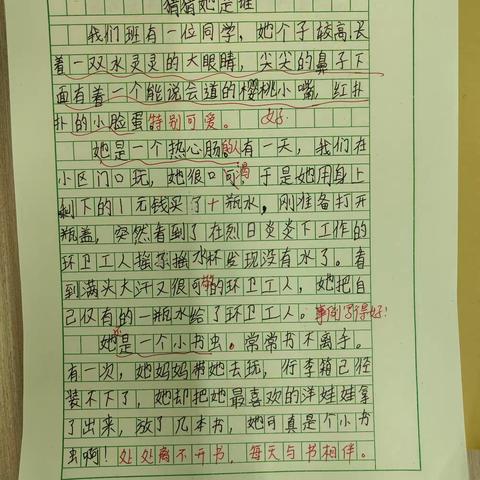 猜猜她是谁
我们班有一位同学，她个子较高，长
着一双水灵灵的大眼睛，尖尖的鼻子下
面有着一个能说会道的樱桃小嘴，红扑
扑的小脸蛋特别可爱。 好.
她是一个热心肠的人有一天，我们在
小区门口玩，她很口渴，于是她用身上
剩下的1元钱买了十瓶水，刚准备打开
瓶盖，突然看到了在烈日炎炎下工作的
环卫工人摇了摇水杯发现没有水了。看
到满头大汗又很可怜的环卫工人，她把自
己仅有的一瓶水给了环卫工人。事例引得好！
她是一个小书虫。常常书不离手。
有一次，她妈妈带她去玩，行李箱已经
装不下了，她却把她最喜欢的洋娃娃拿
了出来，放了几本书，她可真是个小书
虫啊！处处离不开书，每天与书相伴。